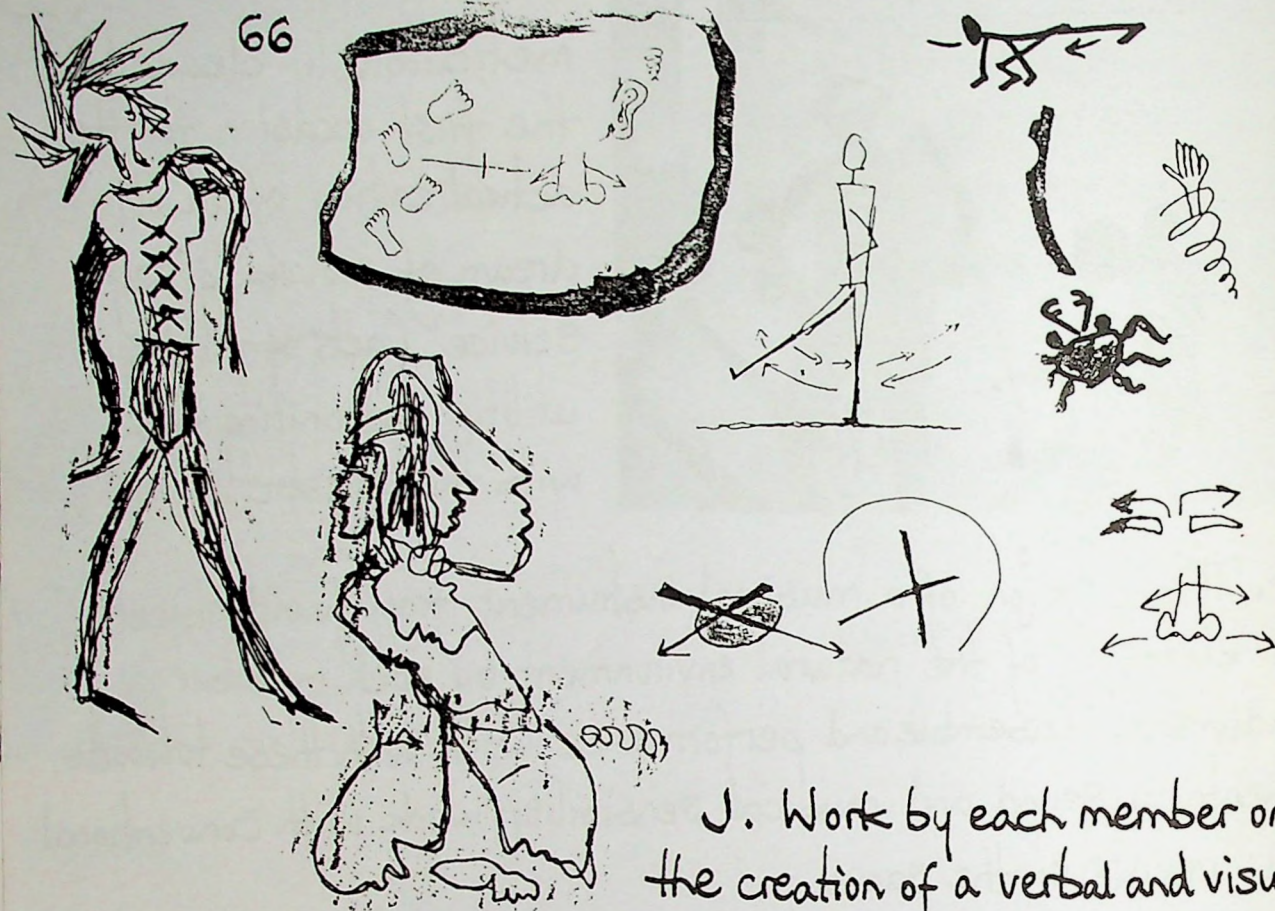 66
J. Work by each member on
the creation of a verbal and visu